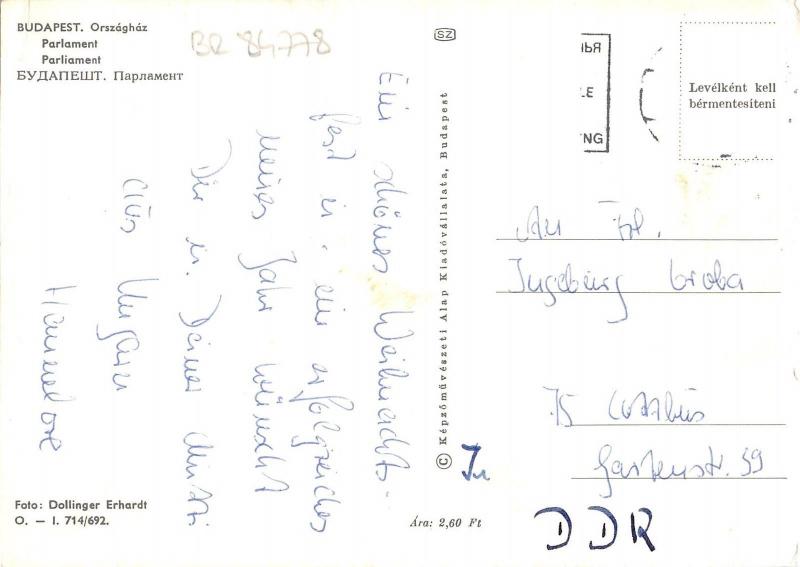 BUDAPEST. Országház
Parlament
Parliament
БУДАПЕШТ. Парламент
BR 84778
Ein schönes Weihnachts-
fest u. ein erfolgreiches
neues Jahr wünscht
Dir u. Deiner Mutti
aus Ungarn
Hannelore
Foto: Dollinger Erhardt
O. — I. 714/692.
SZ
© Képzőművészeti Alap Kiadóvállalata, Budapest
Ára: 2,60 Ft
LE
NG
Levélként kell
bérmentesíteni
An Frl.
Ingeburg Groba
75 Cottbus
Gartenstr. 59
DDR